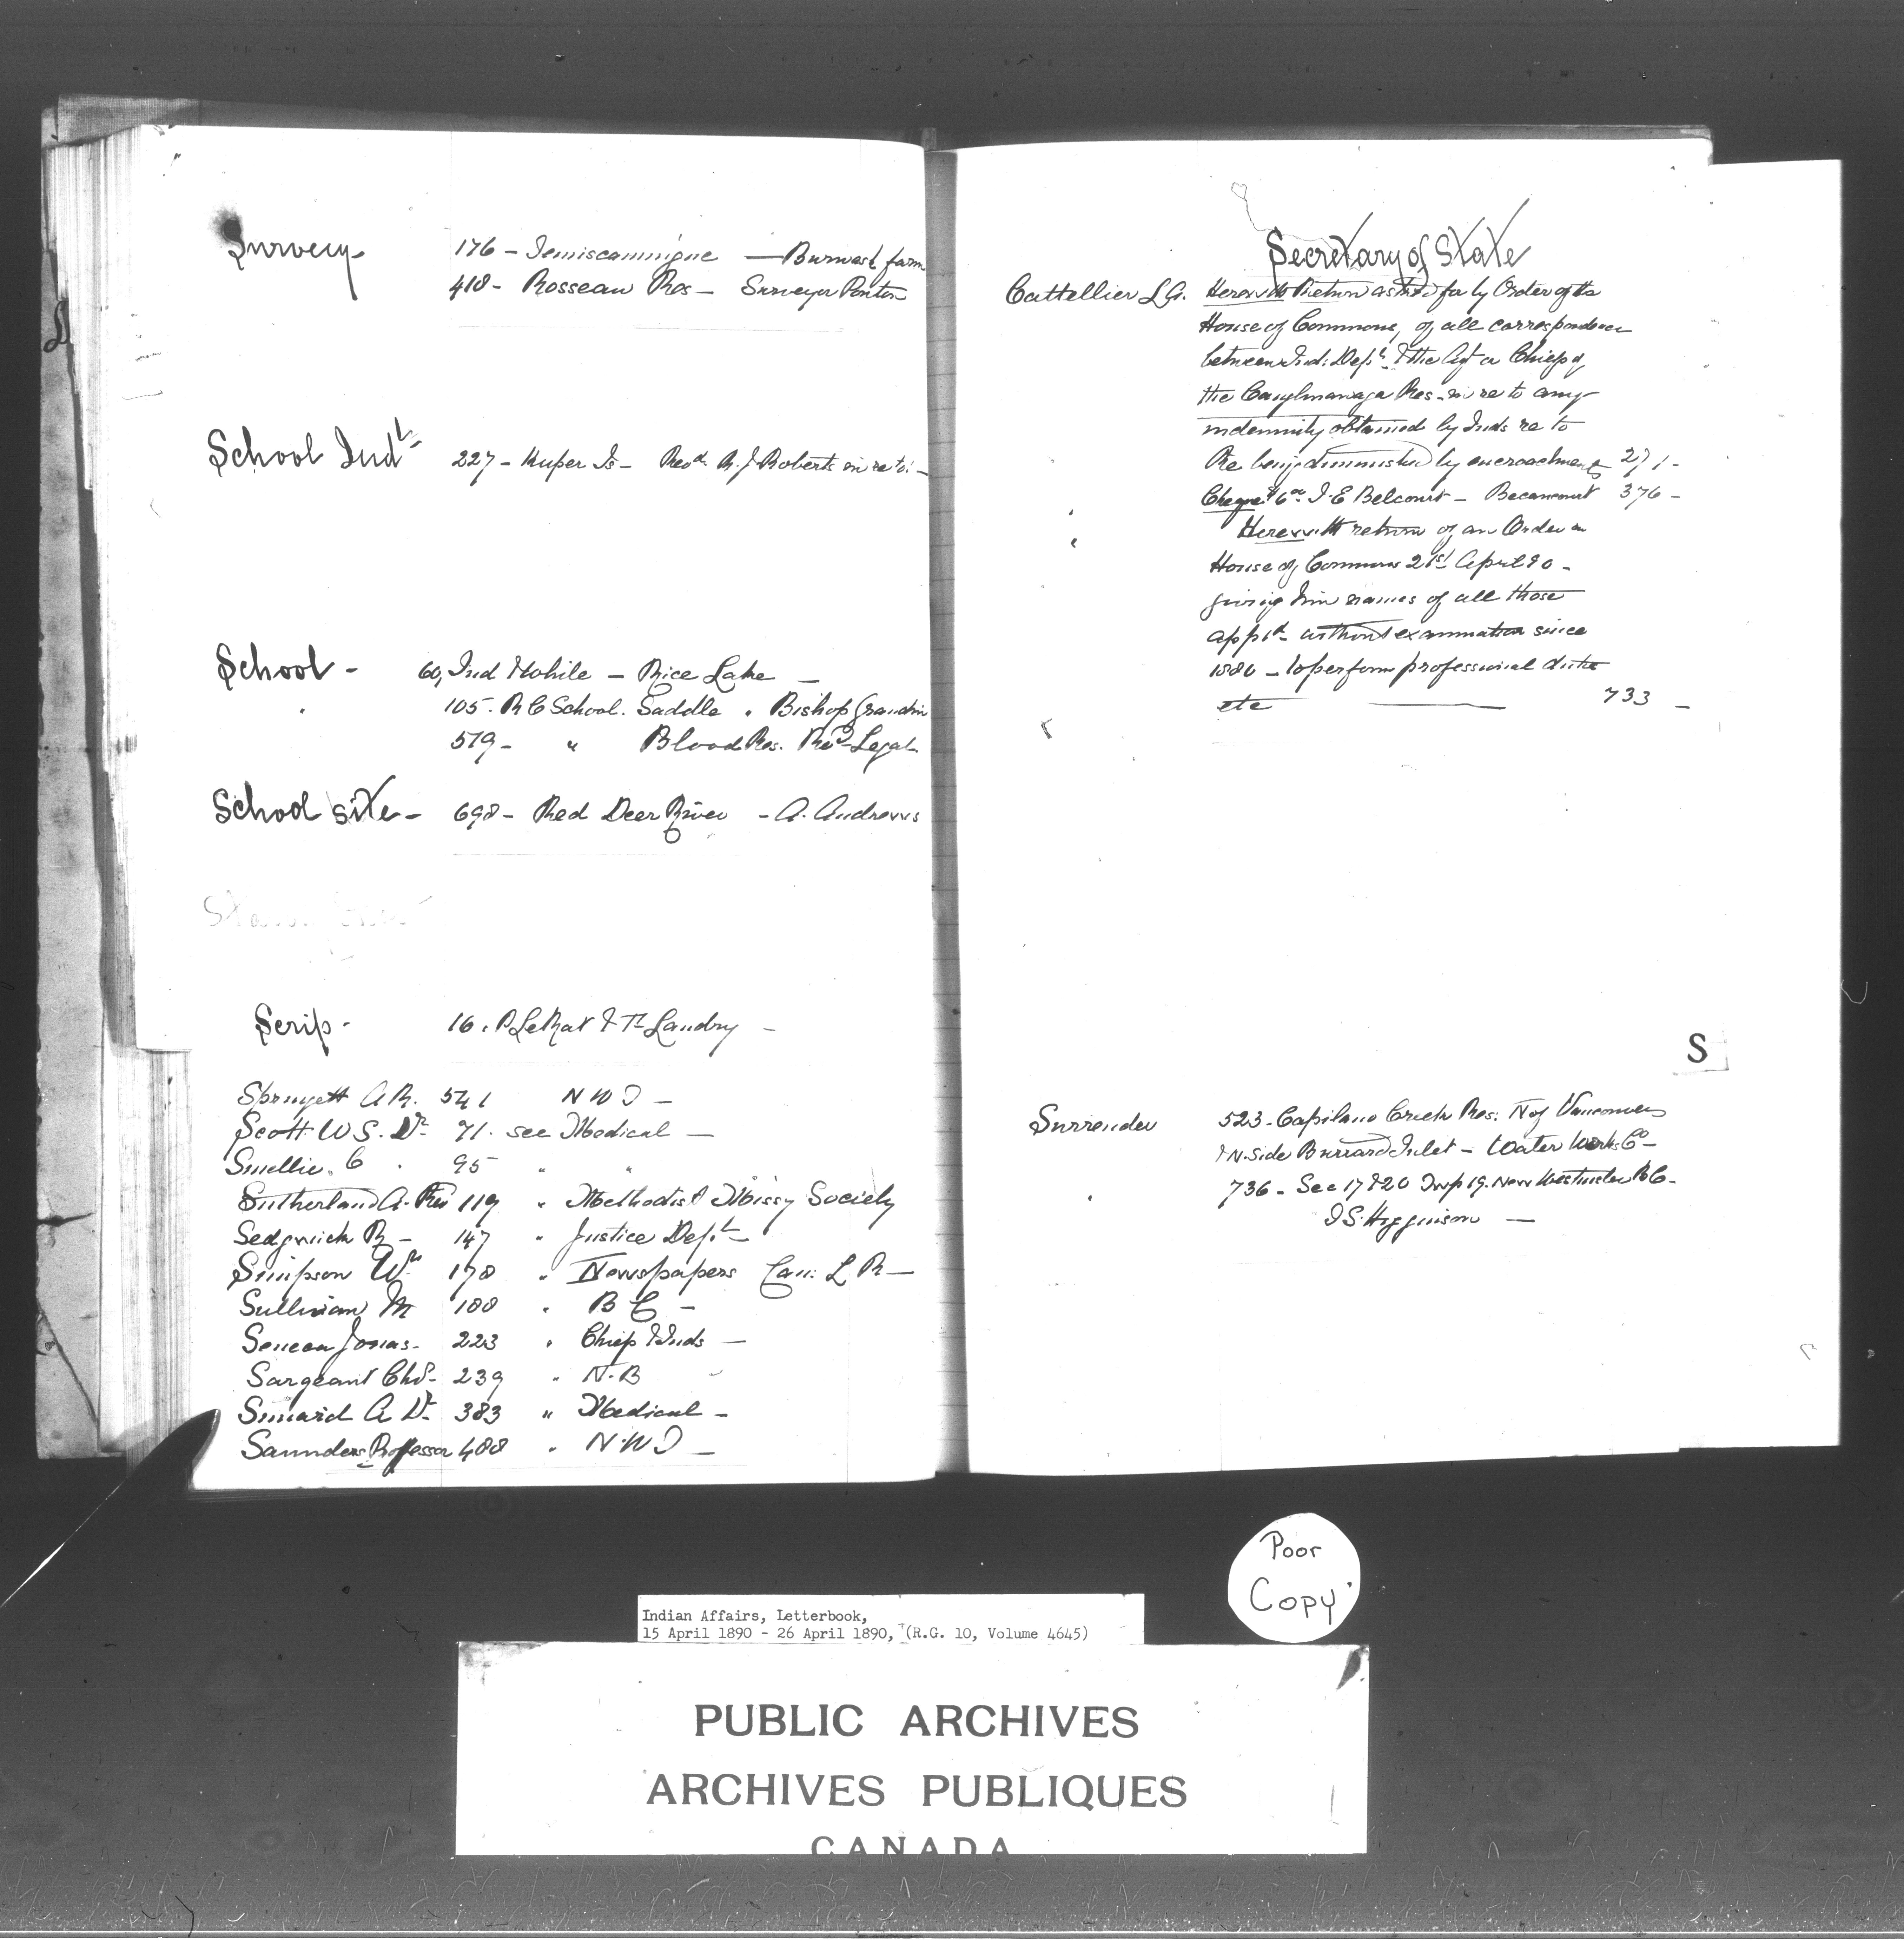 Survey - 176 - Temiscamingue — Burwash farm
418 - Rosseau Res - Surveyor Ponton
School Indl - 227 - Kuper Is - Revd. R. J. Roberts in re to: -
School - 60, Ind Mohile - Rice Lake —
105. R C School. Saddle . Bishop Grandin
579 - " Blood Res. Revd Legal
School site - 698 - Red Deer River - A. Andrews
Scrip - 16. P. LeRat & Landry -
A R. 541 N W T —
Scott W S. Dr. 71. see Medical —
Smellie. C . 95 " "
Sutherland A. Rev 119 " Methodist Missy Society
Sedgwick R - 147 " Justice Dept -
Simpson Wm 178 " Newspapers Can: L R —
Sullivan M 188 " B C -
Seneca Jonas - 223 " Chiefs & Inds —
Sargeant Chs - 239 " N. B
Simard A Dr. 383 " Medical -
Saunders Professor 488 " N. W T —
Secretary of State
Cattellier L A. Herewith Return asked for by Order of the
House of Commons, of all correspondence
between Ind: Dept. & the Agt or Chiefs of
the Caughnawaga Res - in re to any
indemnity obtained by Inds re to
Re being diminished by encroachments 271 -
Cheque $6 00 J. E Belcourt - Becancourt 376 -
Herewith return of an Order
House of Commons 21st April 90 -
giving him names of all those
apptd - without examination since
1880 - to perform professional duties
etc — 733 -
S
Surrender 523 - Capilano Creek Res: N of Vancouver
& N. side Burrard Inlet - Water Works Co -
736 - Sec 17 & 20 Twp 19. New Westminster B C -
J S. Higginson —
Poor
Copy
Indian Affairs, Letterbook,
15 April 1890 - 26 April 1890, (R.G. 10, Volume 4645)
PUBLIC ARCHIVES
ARCHIVES PUBLIQUES
CANADA